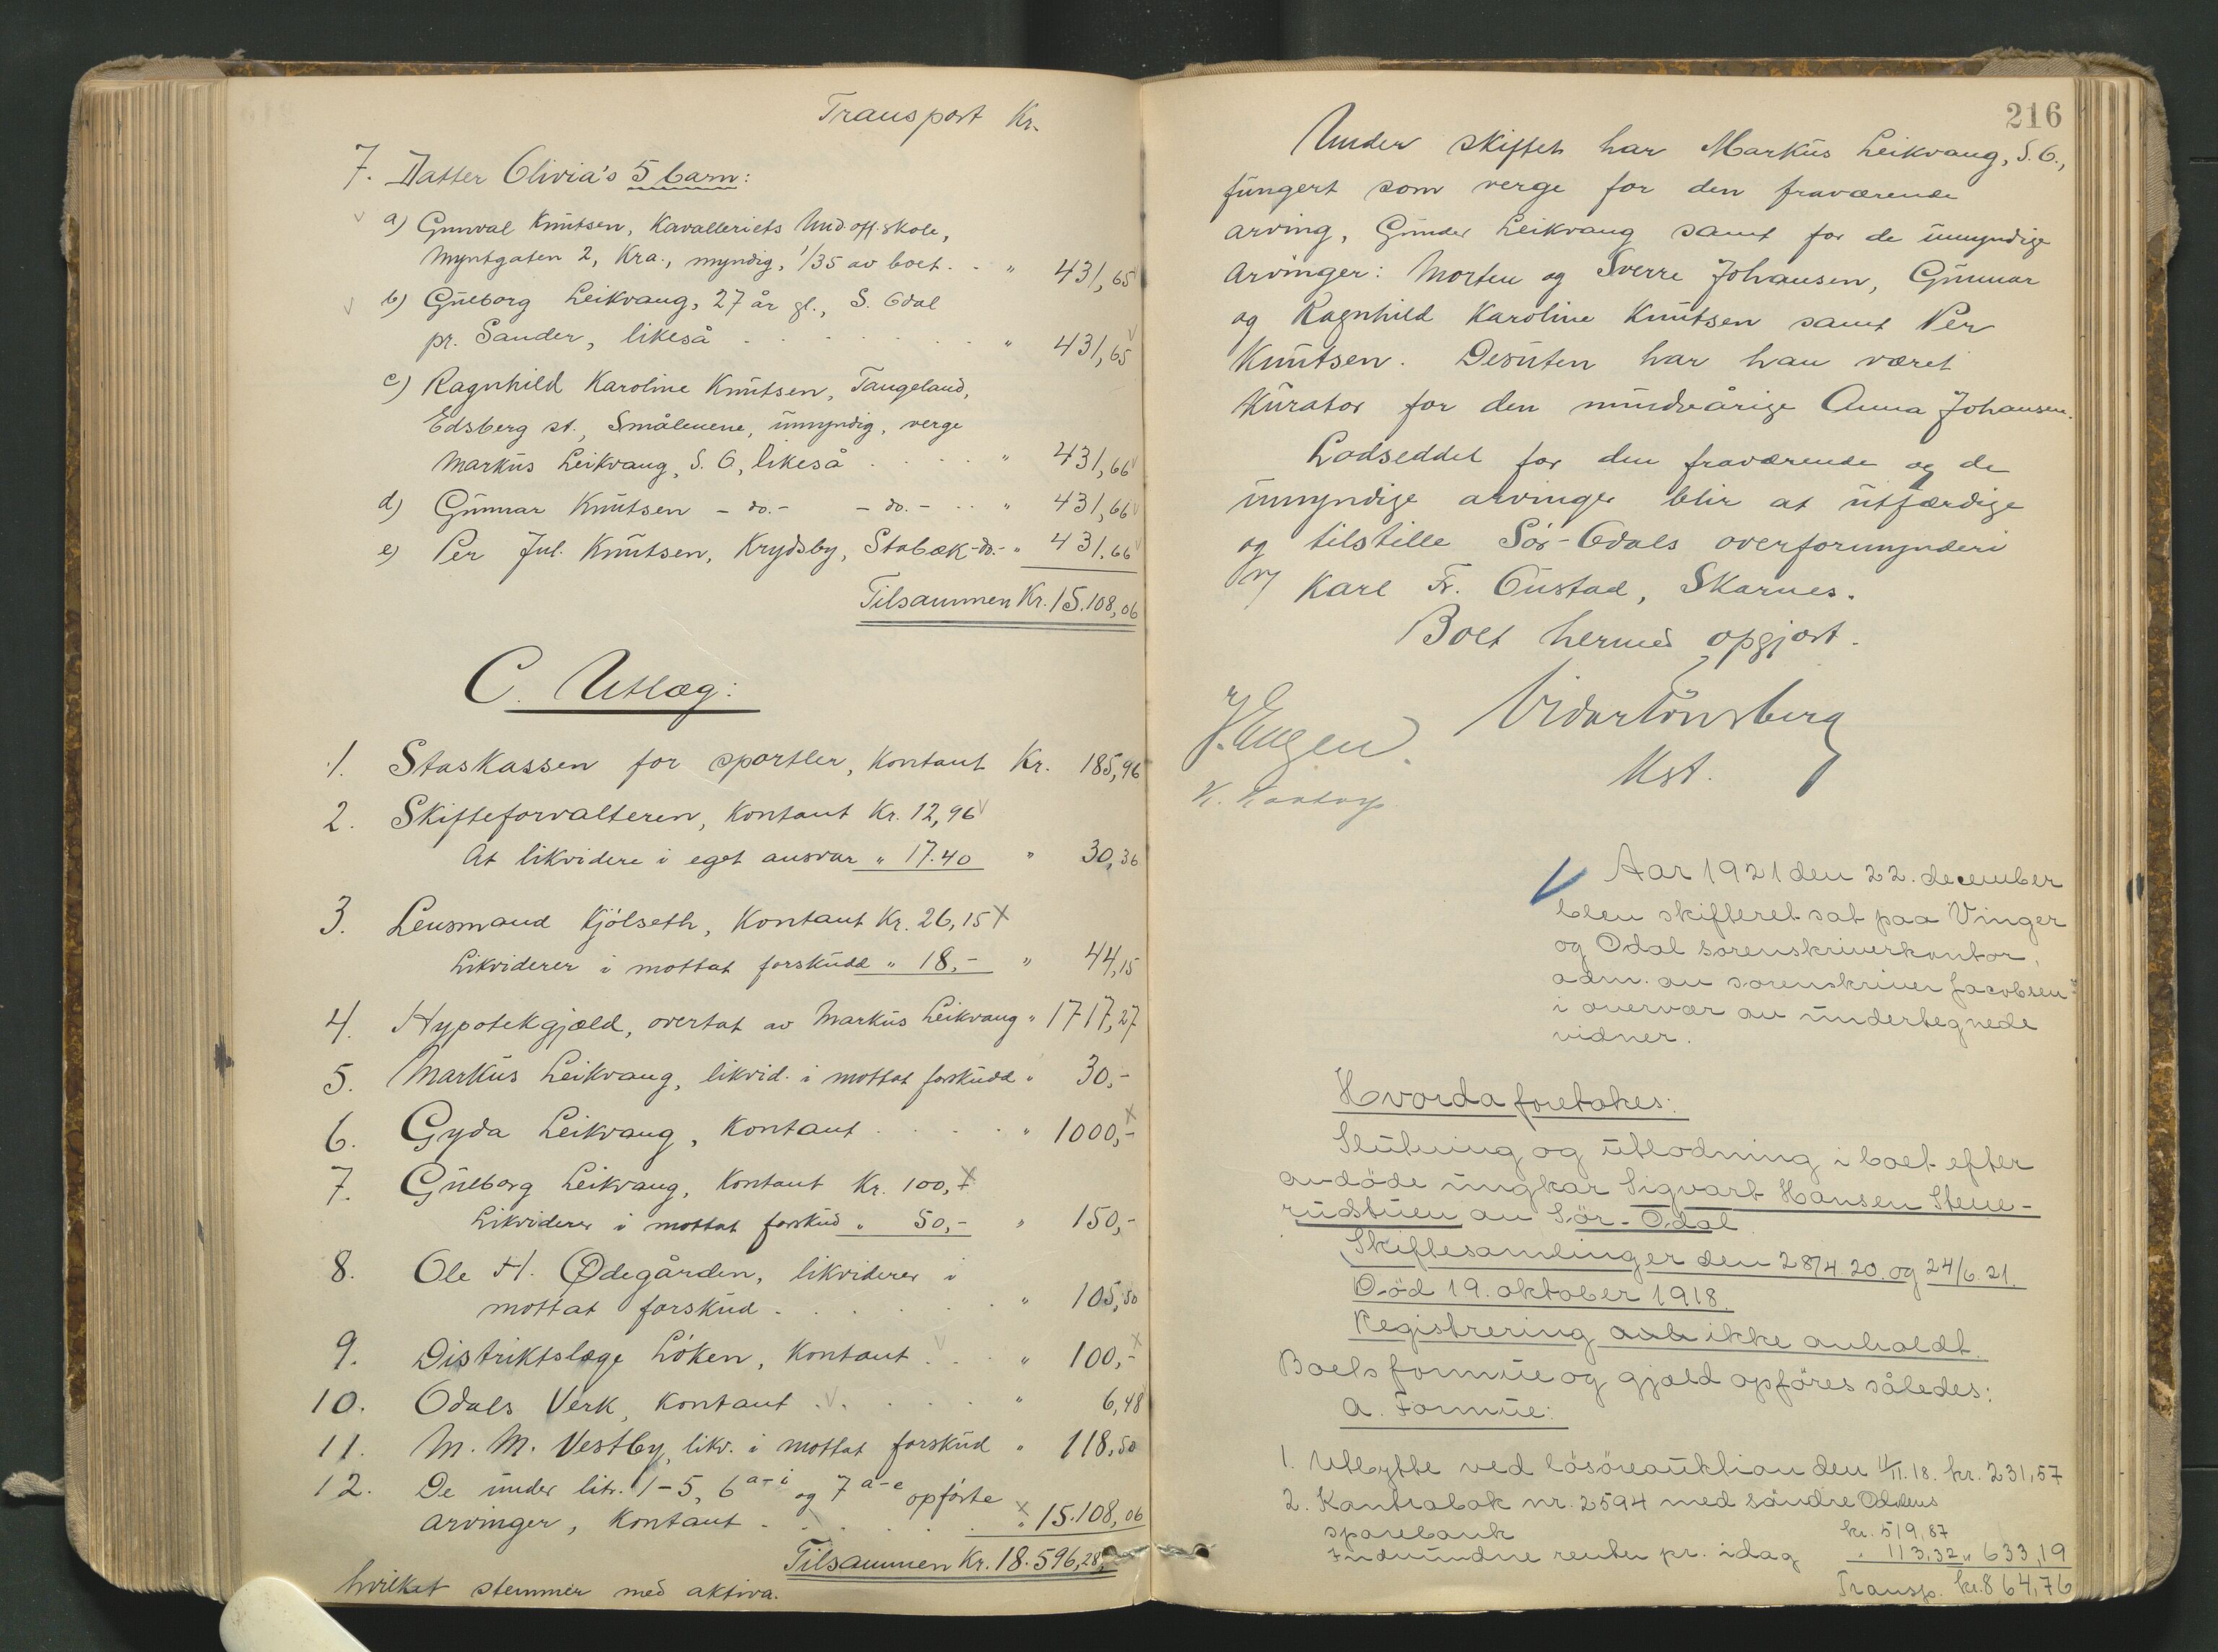 Transport Kr.
7. Datter Olivia's 5 barn:
a) Gunval Knutsen, Kavalleriets Und.off.skole,
Myntgaten 2, Kra., myndig, 1/35 av boet . . " 431,65
b) Gulborg Leikvang, 27 år gl., S. Odal
pr. Sander, likeså . . . . . . . . " 431,65
c) Ragnhild Karoline Knutsen, Tangeland,
Edsberg st., Smålenene, umyndig, verge
Markus Leikvang, S. O, likeså . . . . . " 431,66
d) Gunnar Knutsen - do.- - do.- . . " 431,66
e) Per Jul. Knutsen, Krydsby, Stabæk -do.- " 431,66
Tilsammen Kr. 15.108,06
C. Utlæg:
1. Staskassen for sportler, kontant Kr. 185,96
2. Skifteforvalteren, kontant Kr. 12,96
At likvidere i eget ansvar " 17.40 " 30,36
3. Lensmand Kjølseth, kontant Kr. 26,15 x
Likviderer i mottat forskudd " 18,- " 44,15
4. Hypotekgjæld, overtat av Markus Leikvang " 1717,27
5. Markus Leikvang, likvid. i mottat forskudd " 30,-
6. Gyda Leikvang, kontant . . . . . " 1000,-
7. Gulborg Leikvang, kontant Kr. 100,-
Likviderer i mottat forskud " 50,- " 150,-
8. Ole H. Ødegården, likviderer i
mottat forskud . . . . . . . " 105,50
9. Distriktslæge Löken, kontant . . . " 100,-
10. Odals Verk, kontant . . . . . . " 6,48
11. M. M. Vestby, likv. i mottat forskud " 118,50
12. De under litr. 1-5, 6 a-i og 7 a-e opförte
arvinger, kontant . . . . . . x " 15.108,06
Tilsammen Kr. 18.596,28,
hvilket stemmer med aktiva.
216
Under skiftet har Markus Leikvang, S. O.,
fungert som verge for den fraværende
arving, Gunder Leikvang samt for de umyndige
arvinger: Morten og Sverre Johansen, Gunnar
og Ragnhild Karoline Knutsen samt Per
Knutsen. Desuten har han været
kurator for den mindreårige Anna Johansen.
Lodseddel for den fraværende og de
umyndige arvinger blir at utfærdige
og tilstille Sör-Odals overformynderi
v/ Karl Fr. Oustad, Skarnes.
Boet hermed opgjort.
Vidar Tönsberg
Kst.
J. Engen.
Aar 1921 den 22. december
blev skifteret sat paa Vinger
og Odal sorenskriverkontor,
adm. av sorenskriver Jacobsen
i overvær av undertegnede
vidner.
Hvorda foretokes:
Slutning og utlodning i boet efter
avdöde ungkar Sigvart Hansen Stene-
rudstuen av Sör-Odal
Skiftesamlinger den 28/4 20. og 24/6. 21.
Död 19. oktober 1918.
Registrering ikke avholdt.
Boets formue og gjæld opföres således:
A. Formue:
1. Utbytte ved lösöreauktion den 11/11.18. kr. 231,57
2. Kontrabok nr. 2594 med söndre Odalens
sparebank kr. 519,87
Indvundne renter pr. idag " 113,32 " 633,19
Transp. kr. 864,76